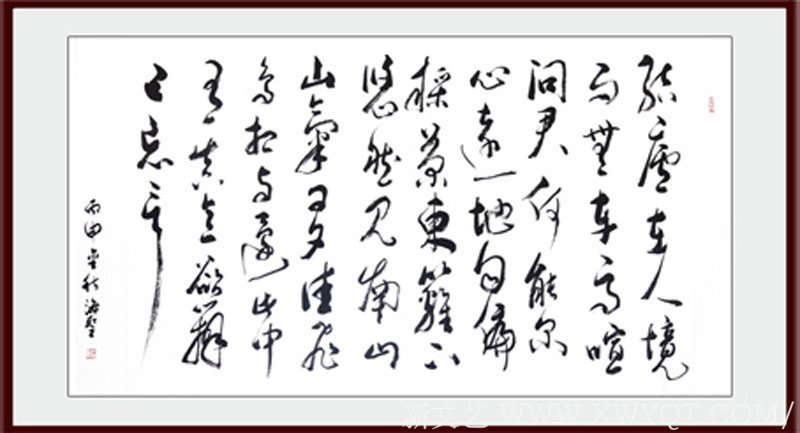 結廬在人境
而無車馬喧
問君何能爾
心遠地自偏
採菊東籬下
悠然見南山
山氣日夕佳飛
鳥相與還此中
有真意欲辨
已忘言
丙申金秋海
新文艺 WWW.XWYQT.COM/